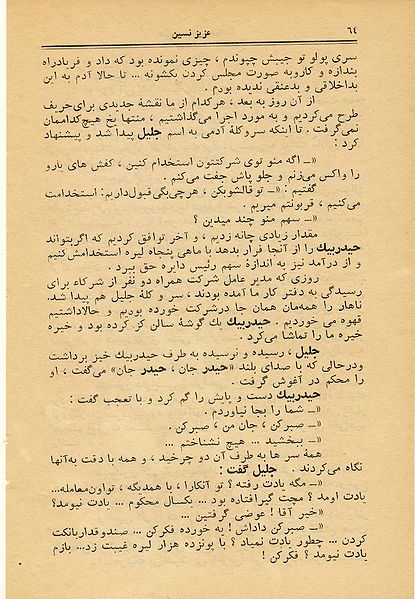 ۶۴
عزیز نسین
سری پولو تو جیبش چپوندم ، چیزی نمونده بود که داد و فریادراه
بندازه و کاروبه صورت مجلس کردن بکشونه ... تا حالا آدم به این
بداخلاقی و بدعنقی ندیده بودم .
از آن روز به بعد ، هرکدام از ما نقشهٔ جدیدی برای‌حریف
طرح می‌کردیم و به مورد اجرا می‌گذاشتیم ، منتها یخ هیچ‌کداممان
نمی‌گرفت . تا اینکه سروکلهٔ آدمی به اسم جلیل پیدا شد و پیشنهاد
کرد :
«ــ اگه منو توی شرکتتون استخدام کنین ، کفش های یارو
را واکس می‌زنم و جلو پاش جفت می‌کنم .
گفتیم : «ــ تو قالشوبکن ، هرچی‌بگی‌قبول‌داریم : استخدامت
می‌کنیم ، قربونتم میریم .
«ــ سهم منو چند میدین ؟
مقدار زیادی چانه زدیم ، و آخر توافق کردیم که اگر بتواند
حیدربیك را از آنجا فرار بدهد با ماهی پنجاه لیره استخدامش‌کنیم
و از درآمد نیز به اندازهٔ سهم رئیس دایره حق ببرد .
روزی که مدیر عامل شرکت همراه دو نفر از شرکاء برای
رسیدگی به دفتر کار ما آمده بودند ، سر و کلهٔ جلیل هم پیدا شد.
ناهار را همه‌مان همان جا درشرکت خورده بودیم و حالاداشتیم
قهوه می خوردیم . حیدربیك یك گوشهٔ سالن کز کرده بود و خیره
خیره ما را تماشا می‌کرد .
جلیل ، رسیده و نرسیده به طرف حیدربیك خیز برداشت
ودرحالی که با صدای بلند «حیدر جان ، حیدر جان» می‌گفت ، او
را محکم در آغوش گرفت .
حیدربیك دست و پایش را گم کرد و با تعجب گفت :
«ــ شما را بجا نیاوردم .
«ــ صبرکن ، جان من ، صبرکن .
«ــ ببخشید ... هیچ نشناختم ...
همهٔ سر ها به طرف آن دو چرخید ، و همه با دقت به‌آنها
نگاه می‌کردند . جلیل گفت :
«ــ مگه یادت رفته ؟ تو آنکارا ، با همدیگه ، تواون‌معامله...
یادت اومد ؟ مچت گیرافتاده بود ... یکسال محکوم ... یادت نیومد؟
«خیر آقا ! عوضی گرفتین ...
«ــ صبرکن داداش ! یه خورده فکرکن ... صندوقداربانکت
کردن ... چطور یادت نمیاد ؟ با پونزده هزار لیره غیبت زد... بازم
یادت نیومد ؟ فکرکن !